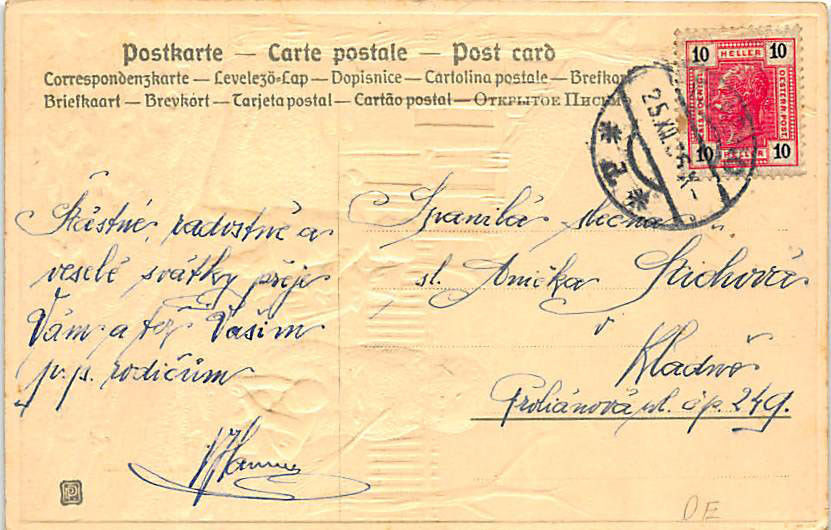 Postkarte — Carte postale — Post card
Correspondenzkarte — Levelező-Lap — Dopisnice — Cartolina postale — Brefkort
Briefkaart — Brevkort — Tarjeta postal — Cartão postal — Открытое Письмо
10 HELLER 10
10 HELLER 10
25.XII.
Šťastné, radostné a
veselé svátky přeje
Vám a též Vašim
p.p. rodičům
Spanilá slečna
sl. Anička
v
Kladně
ul. čp. 249.
DE